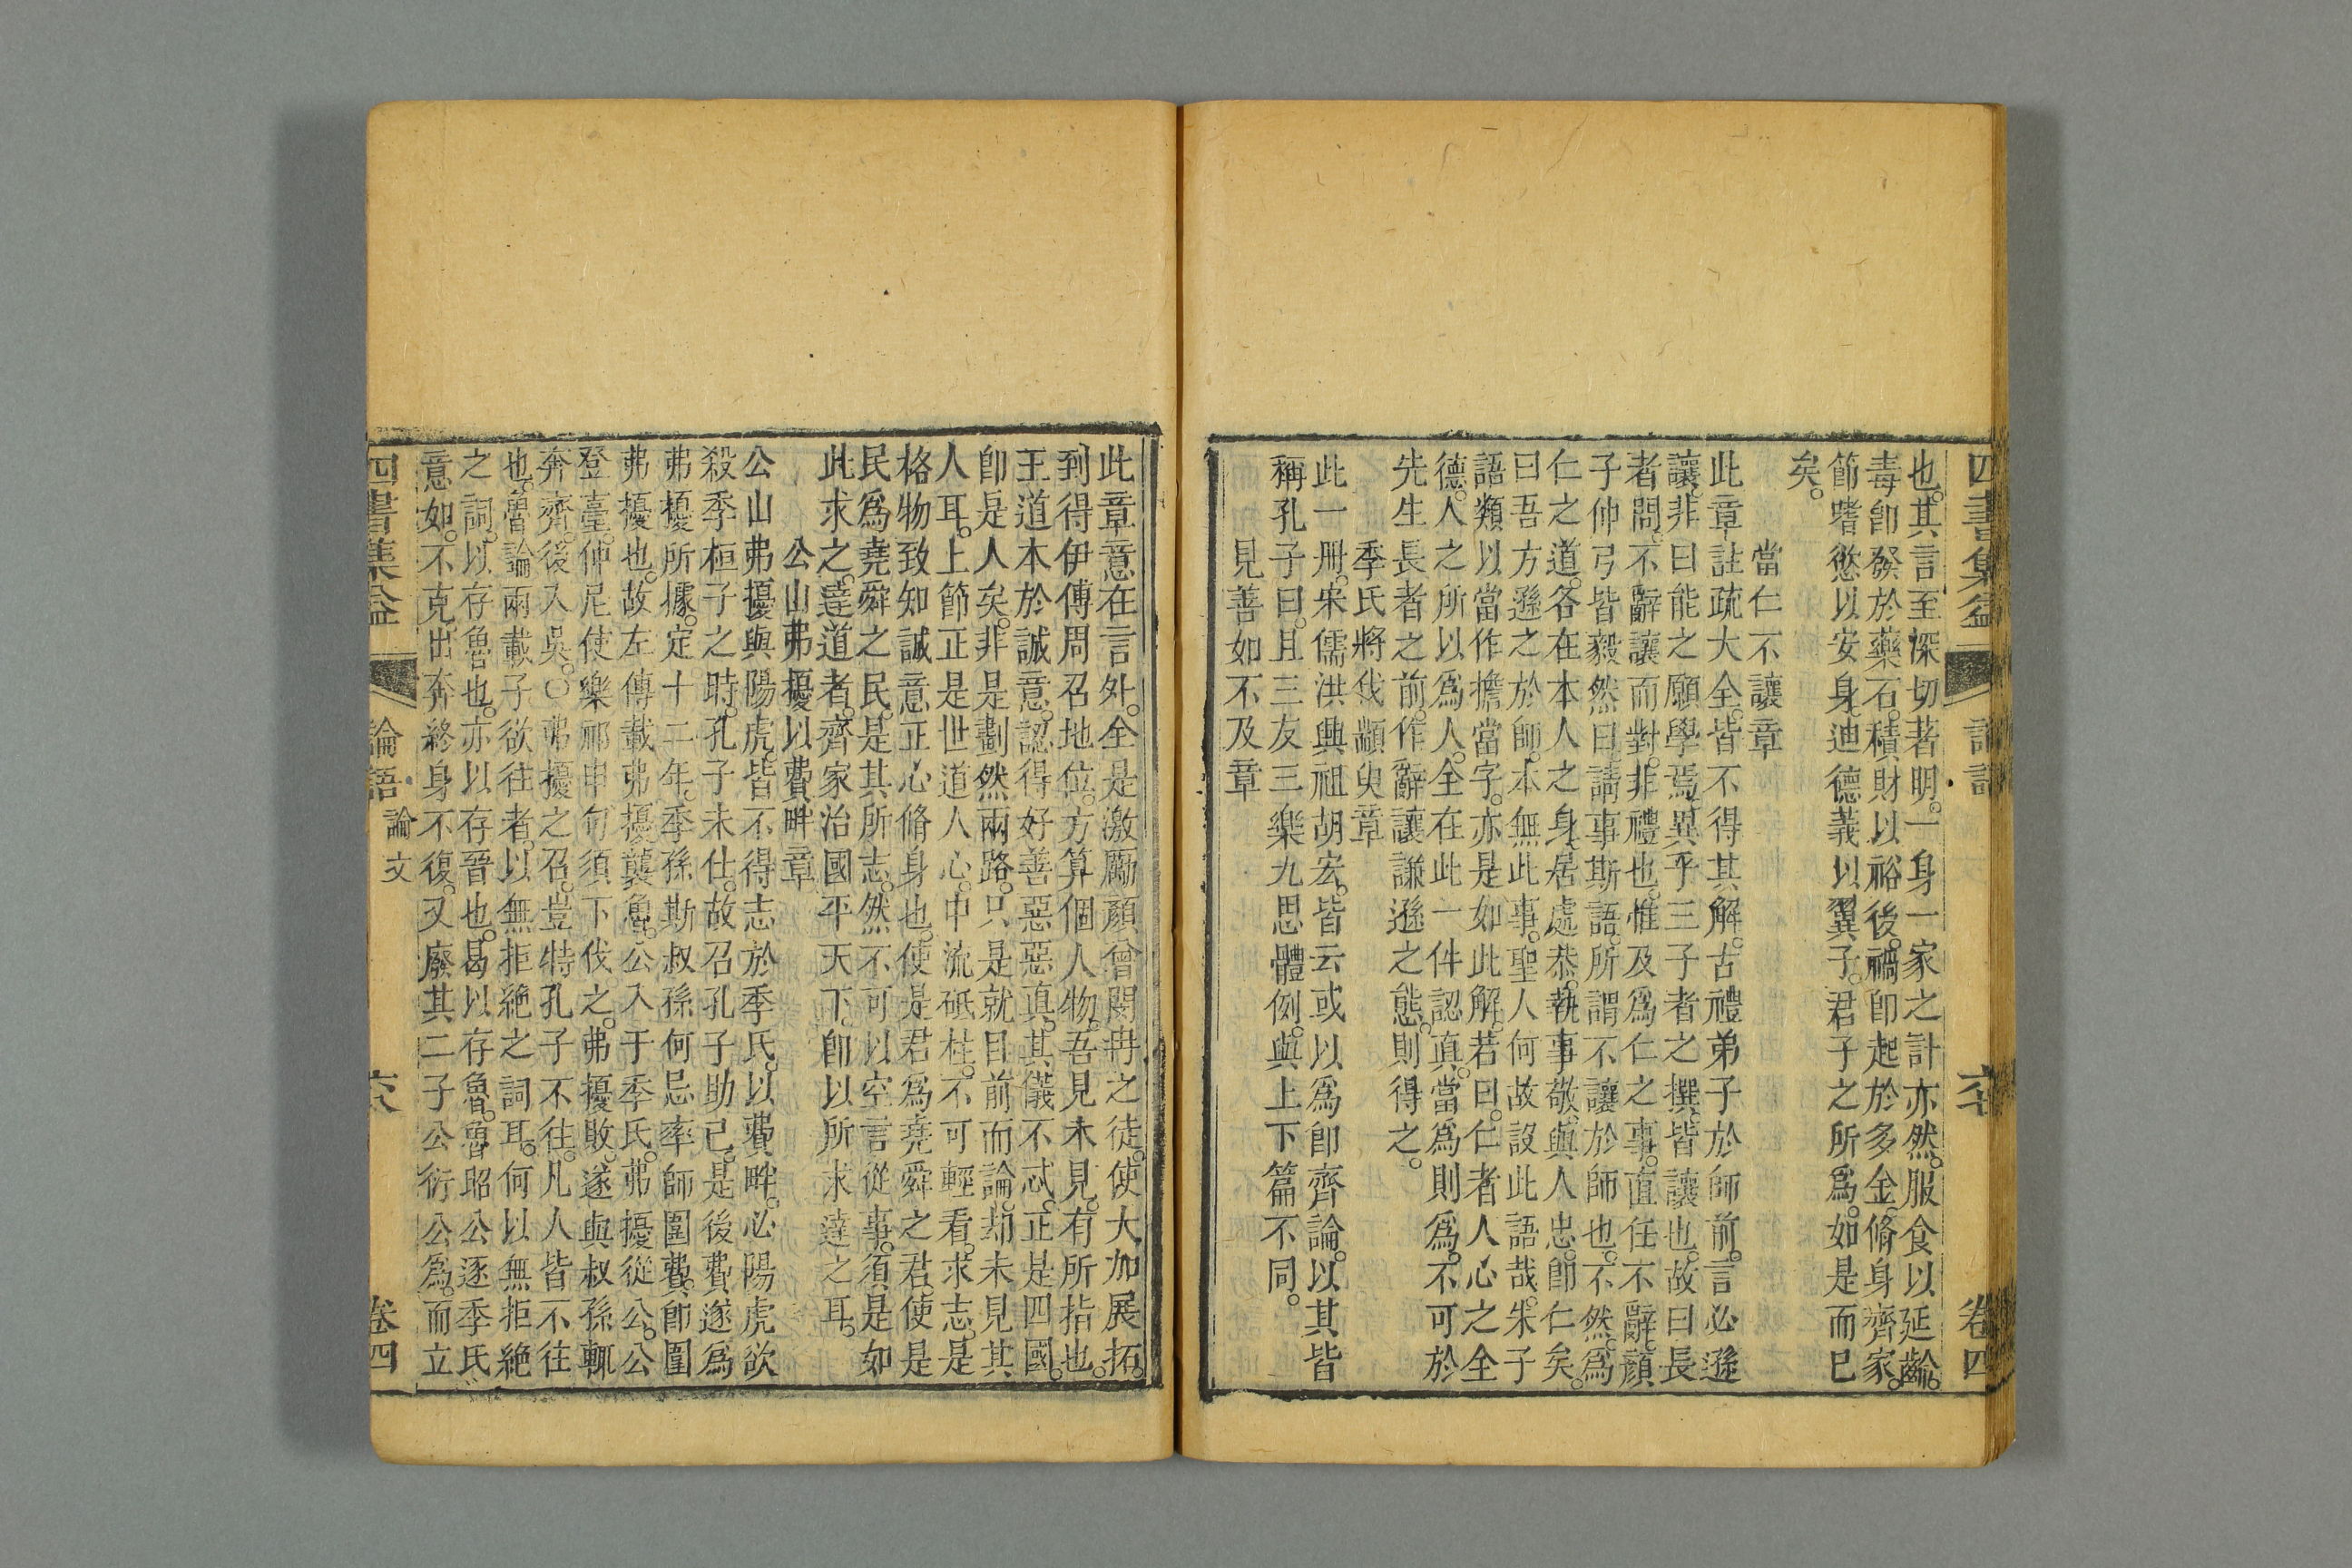 四書集益 六十 卷四
也。其言至深切著明。一身一家之計亦然。服食以延齡。
毒即發於藥石。積財以裕後。禍即起於多金。脩身齊家。
節嗜慾以安身。迪德義以翼子。君子之所爲。如是而已
矣。
當仁不讓章
此章註疏大全。皆不得其解。古禮弟子於師前。言必遜
讓。非曰能之願學焉。異乎三子者之撰。皆讓也。故曰長
者問。不辭讓而對。非禮也。惟及爲仁之事。直任不辭。顏
子仲弓皆毅然曰請事斯語。所謂不讓於師也。不然。爲
仁之道。各在本人之身。居處恭。執事敬。與人忠。即仁矣。
曰吾方遜之於師。本無此事。聖人何故設此語哉。朱子
語類以當作擔當字。亦是如此解。若曰。仁者人心之全
德。人之所以爲人。全在此一件認眞。當爲則爲。不可於
先生長者之前。作辭讓謙遜之態。則得之。
季氏將伐顓臾章
此一册。宋儒洪興祖胡宏。皆云或以爲即齊論。以其皆
稱孔子曰。且三友三樂九思體例。與上下篇不同。
見善如不及章
此章意在言外。全是激勵顏曾閔冉之徒。使大加展拓。
到得伊傅周召地位。方算個人物。吾見未見。有所指也。
王道本於誠意。認得好善惡惡眞。其儀不忒。正是四國。
即是人矣。非是劃然兩路。只是就目前而論。却未見其
人耳。上節正是世道人心。中流砥柱。不可輕看。求志。是
格物致知誠意正心脩身也。使是君爲堯舜之君。使是
民爲堯舜之民。是其所志。然不可以空言從事。須是如
此求之。達道者。齊家治國平天下。即以所求達之耳。
公山弗擾以費畔章
公山弗擾與陽虎。皆不得志於季氏。以費畔。必陽虎欲
殺季桓子之時。孔子未仕。故召孔子助己。是後費遂爲
弗擾所據。定十二年。季孫斯叔孫何忌率師圍費。即圍
弗擾也。故左傳載弗擾襲魯。公入于季氏。弗擾從公。公
登臺。仲尼使樂頎申句須下伐之。弗擾敗。遂與叔孫輒
奔齊。後入吳。○弗擾之召。豈特孔子不往。凡人皆不往
也。魯論兩載子欲往者。以無拒絶之詞耳。何以無拒絶
之詞。以存魯也。亦以存晉也。曷以存魯。魯昭公逐季氏
意如。不克。出奔終身不復。又廢其二子公衍公爲。而立
四書集益 論語 論文 六八 卷四